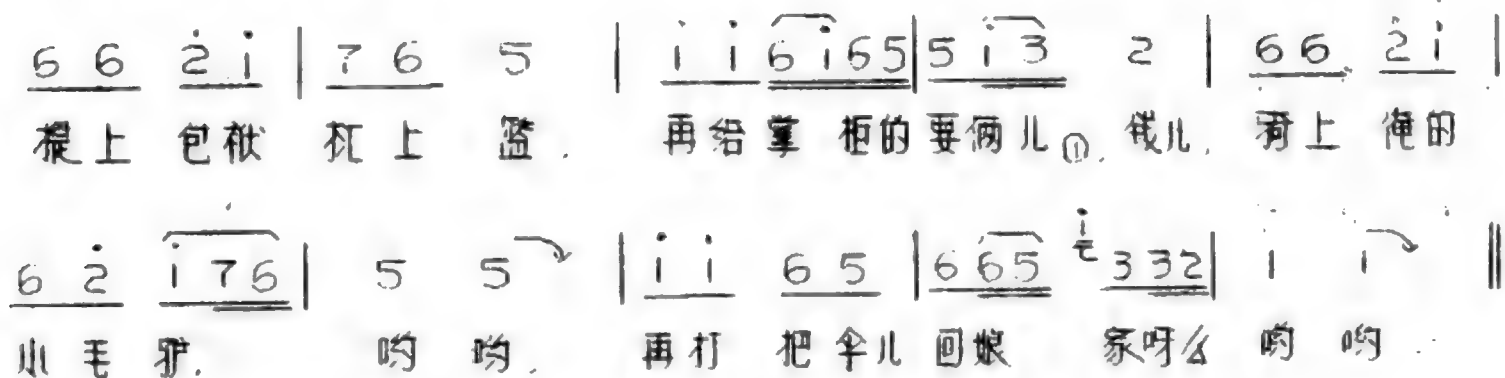 6 6 2̇ 1̇ | 7 6 5 | 1̇ 1̇ 6 1̇ 6 5 | 5 1̇ 3 2 | 6 6 2̇ 1̇ |
提上 包袱 扛上 篮. 再给掌 柜的要俩儿①. 钱儿. 骑上 俺的
6 2̇ 1̇ 7 6 | 5 5 | 1̇ 1̇ 6 5 | 6 6 5 1̇ 3 3 2 | 1 1 ‖
小毛驴. 哟 哟. 再打 把伞儿 回娘 家呀么 哟 哟.